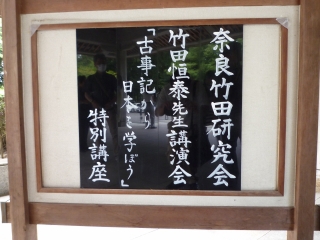 奈良竹田研究会
竹田恒泰先生講演会
「古事記から
日本を学ぼう」
特別講座